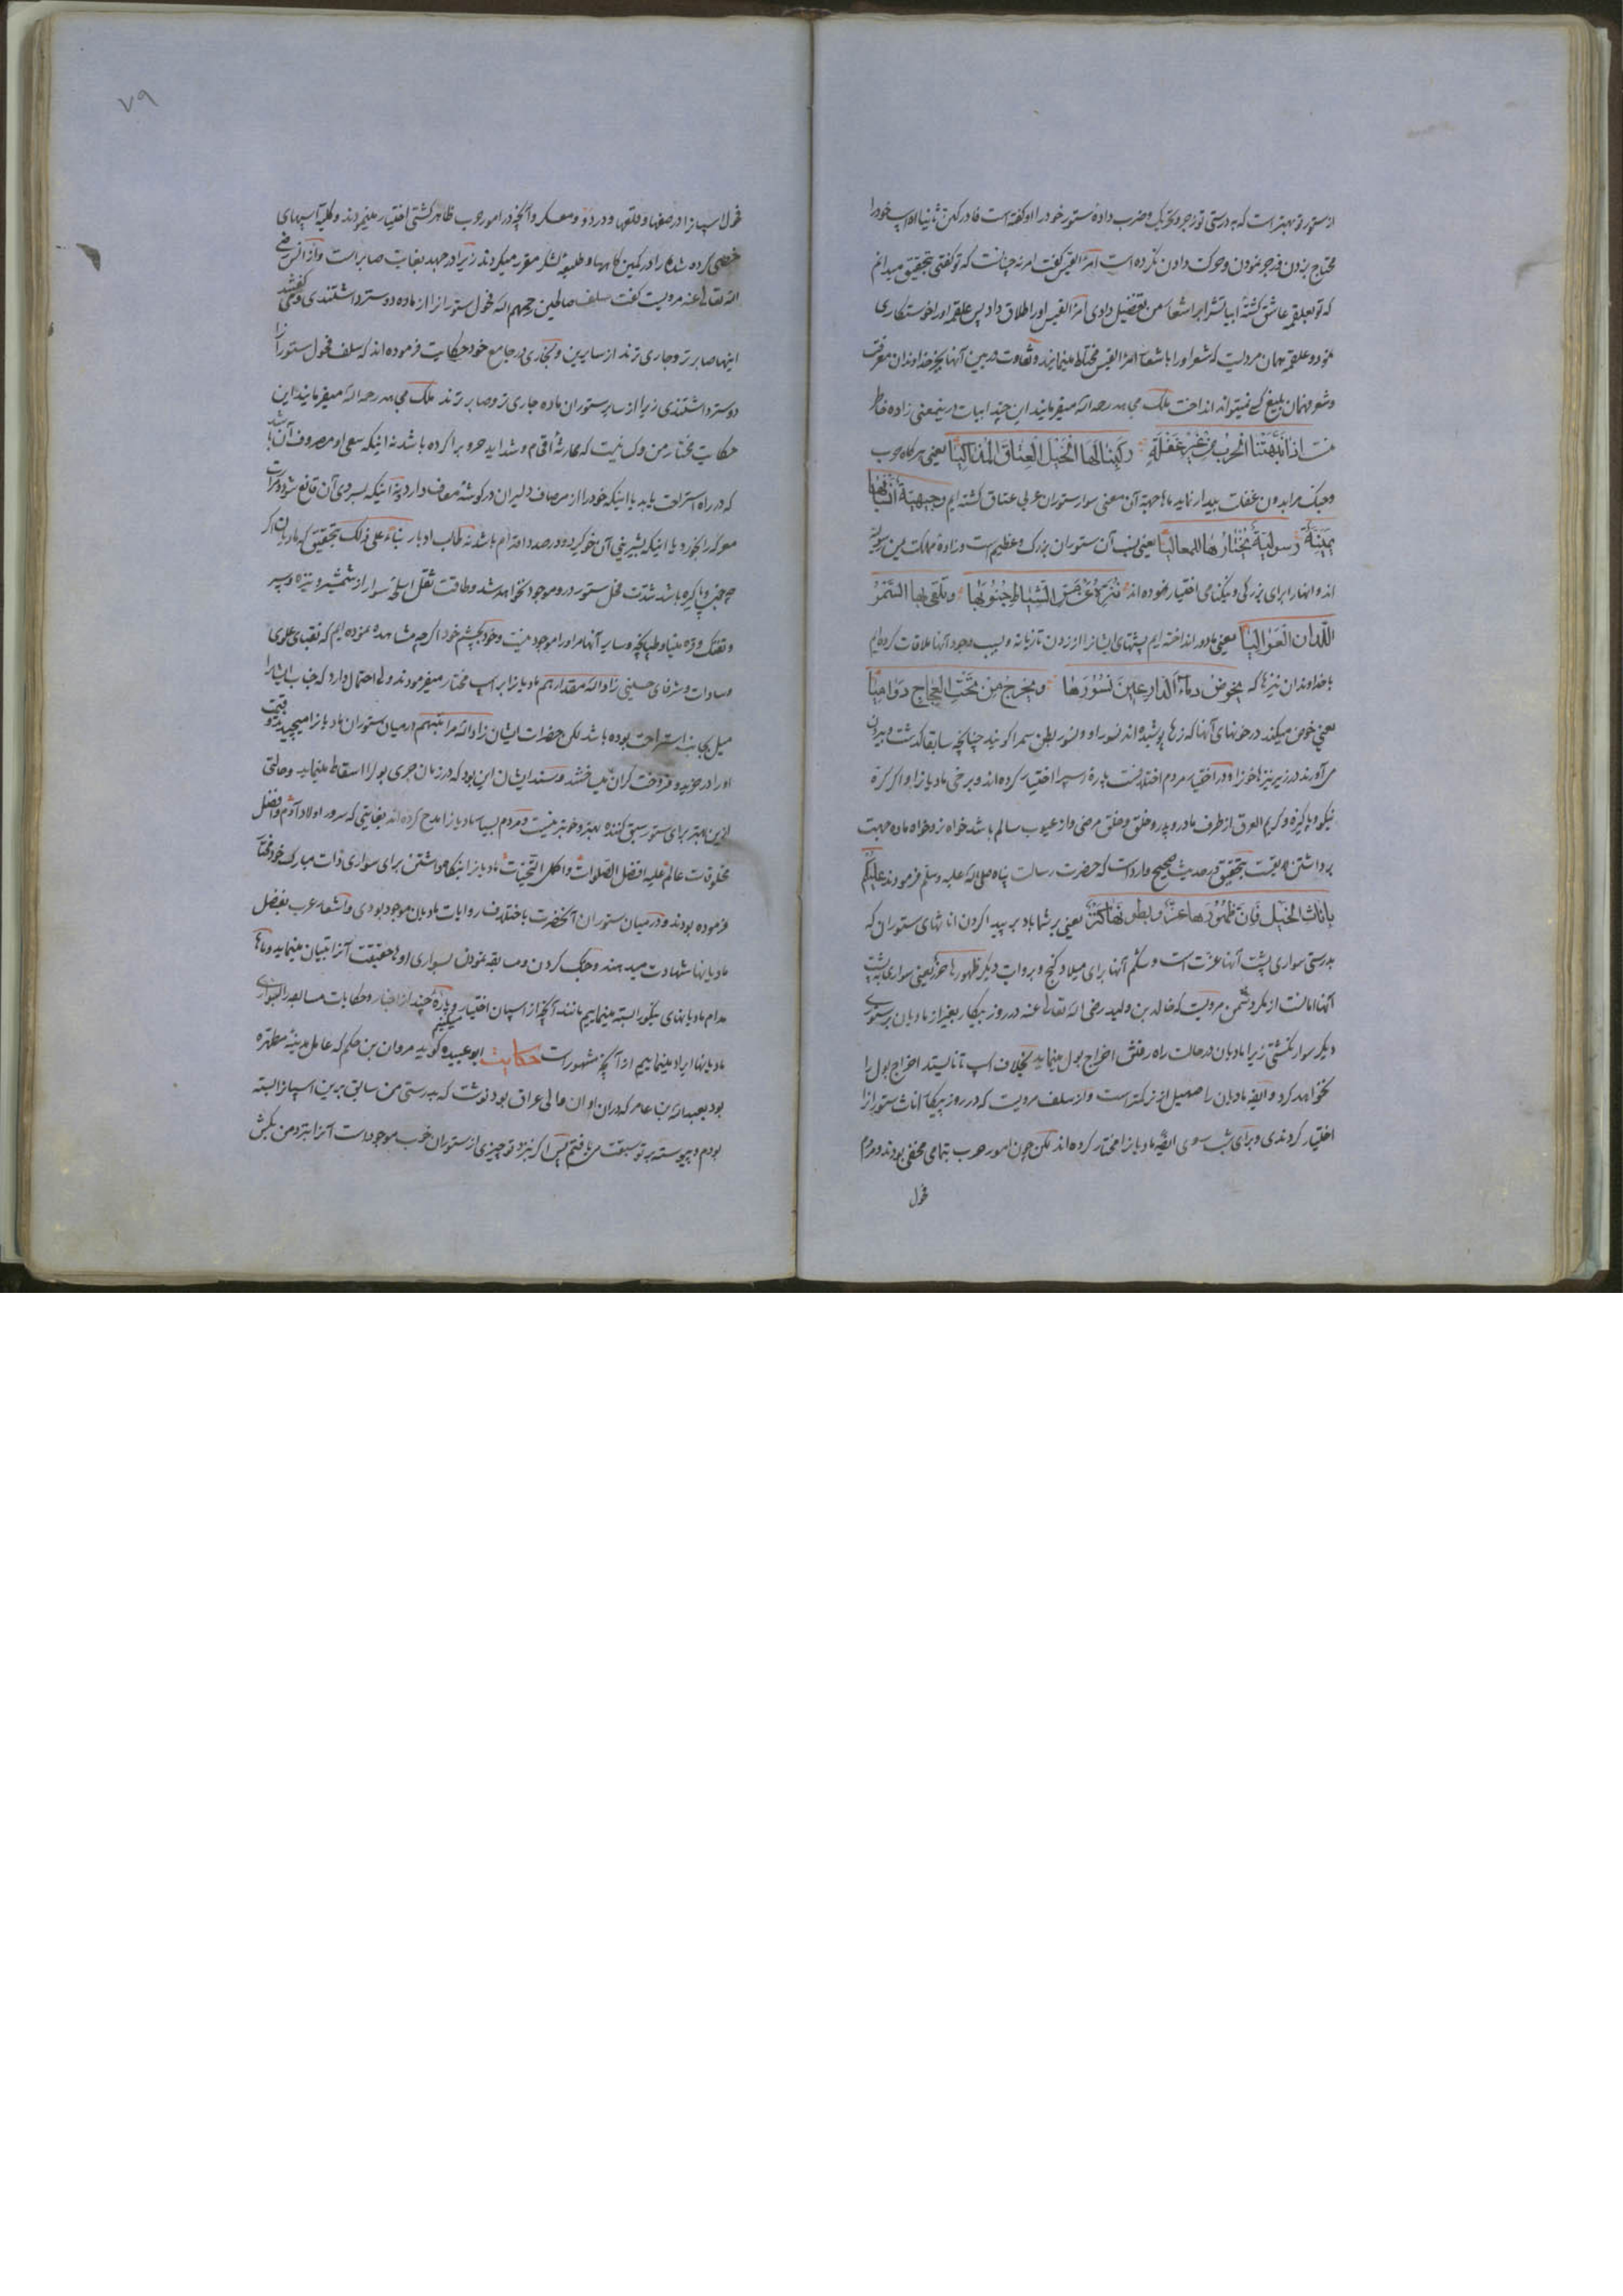 از ستور تو بهتر است که به درستی تو زجر و تحریک و ضرب داده ستور خود را او گفته است فادرکهن ثانیا او اسپ خود را
محتاج بزدن و زجر نمودن و حرکت دادن نکرده است امرؤ القیس گفت امر نه چنانست که تو گفتی بتحقیق میدانم
که تو بعلقمه عاشق گشته ابیاتش را بر اشعار من تفضیل دادی امرؤ القیس او را طلاق داد پس علقمه او را خواستکاری
نمود و علقمه همان مردیست که شعر او را با شعار امرؤ القیس مختلط مینمایند و تفاوت در بین آنها بجز خداوندان معرفت
و شعر فهمان بلیغ کسی نمیتواند انداخت ملک مجاهد رحمه الله میفرمایند این چند ابیات درینمعنی زاده خاطر
منست اذا نبهتنا الحرب من غیر غفلة رکبنا لها الخیل العتاق المذاکیا یعنی هر گاه حرب
و جنگ مرا بدون غفلت بیدار نماید ما بجهة آن معنی سوار ستوران عربی عتاق گشته ایم وجیهیة انسابها
یمنیة رسولیة نختارها للمعالیا یعنی نسب آن ستوران بزرگ و عظیم است و زاده مملکت یمن رسولیه
اند و آنها را برای بزرگی و نیکنامی اختیار نموده اند ننزه عن مس السیاط جنوبها و نلقی بها السمر
اللدان العوالیا یعنی ما دور انداخته ایم پشتهای ایشانرا از زدن تازیانه و بسبب وجود آنها ملاقات کرده ایم
با خداوندان نیزها که یخوض دماء الدارعین نسورها و یخرج من تحت العجاج دوامیا
یعنی خوض میکند در خونهای آنها که زرها پوشیده اند نسور او و نسور بطن سم را گویند چنانچه سابقا گذشت و بیرون
می آورند در زیر نیزها خوزاه در اختیار مردم اختلافست پاره اسپ را اختیار کرده اند و برخی مادیانرا و اگر کره
نیکو و پاکیزه و کریم العرق از طرف مادر و پدر و خلق و خلق مرضی و از عیوب سالم باشد خواه نر و خواه ماده جهت
برداشتن و سبقت بتحقیق در حدیث صحیح وارد است که حضرت رسالت پناه صلی الله علیه وسلم فرمودند علیکم
باناث الخیل فان ظهورها عز و بطونها کنز یعنی بر شما باد بر پیدا کردن اناثهای ستوران که
بدرستی سواری پشت آنها عزت است و شکم آنها برای میلاد گنج و بروایت دیگر ظهورها حرز یعنی سواری پشت
آنها امانست از مکر دشمن مرویست که خالد بن ولید رضی الله تعالی عنه در روز پیکار بغیر از مادیان بر ستوری
دیگر سوار نگشتی زیرا مادیان در حالت راه رفتن اخراج بول مینماید بخلاف اسپ تا نایستد اخراج بول را
نخواهد کرد و ایضه مادیان را صهیل از نر کمتر است و از سلف مرویست که در روز پیکار اناث ستورانرا
اختیار کردندی و برای شب روی ایضه مادیانرا مختار کرده اند لکن چون امور حرب بتمامی مخفی بودند و مردم
فحول
۷۹
فحول اسپانرا در صفها و قلعها و در دز و معسکر و آنچه در امور حرب ظاهر گشتی اختیار مینمودند و کلیه اسپهای
خصی کرده شده را در کمین گاهها و طلیعه لشکر مقرر میکردند زیرا در جهد بغایت صابر است و از انس رضی
الله تعالی عنه مرویست گفت سلف صالحین رحمهم الله فحول ستورانرا از ماده دوستر داشتندی و می گفتند
اینها صابر تر و جاری ترند از سایرین و بخاری در جامع خود حکایت فرموده اند که سلف فحول ستورانرا
دوستر داشتندی زیرا از سایر ستوران ماده جاری تر و صابر ترند ملک مجاهد رحمه الله میفرمایند این
حکایت مختار من و کسانیست که ممارسه اقحام و شداید حروب را کرده باشد نه اینکه سعی او مصروف آن باشد
که در راه استراحت یابد یا اینکه خود را از مصاف دلیران در گوشه معاف دارد و نه اینکه بسردی آن قانع شود و مرارت
معرکه را نخورد یا اینکه بشیرینی آن خو گیرد و در صدد اقدام باشد نه طالب ادبار بناء علی ذلک بتحقیق که مادیان اگر
چه نجیب و پاکیزه باشد شدت فحل ستور در و موجود نخواهد شد و طاقت ثقل اسلحه سوار از شمشیر و نیزه و سپر
و تفنگ و قره مینا و طپانچه و سایر آنها مر او را موجود نیست و خود بچشم خود اگر چه مشاهده نموده ایم که نقبای علوی
و سادات و شرفای حسینی زاد الله مقدارهم مادیانرا بر اسپ مختار میفرمودند ولی احتمال دارد که جناب ایشانرا
میل بجانب استراحت بوده باشد لکن حضرات ایشان زاد الله مراتبهم در میان ستوران مادیانرا میچیدند و قیمت
او را در خرید و فروخت گران میساختند و سند ایشان این بود که در زمان جری بول را اسقاط مینماید و حالتی
ازین بهتر برای ستور سبق کننده بهتر و خوبتر نیست و مردم بسیار مادیانرا مدح کرده اند بغایتی که سرور اولاد آدم و افضل
مخلوقات عالم علیه افضل الصلوات و اکمل التحیات مادیانرا بنکاه داشتن برای سواری ذات مبارک خود مختار
فرموده بودند و در میان ستوران آنحضرت باختلاف روایات مادیان موجود بودی و اشعار عرب بفضل
مادیانها شهادت میدهند و جنگ کردن و مسابقه نمودن بسواری او ها حقیقت آنرا بتیان مینماید و ما ها
مدام مادیانهای نیکو را البته مینماییم مانند آنچه از اسپان اختیار میکنیم و پاره چند از اخبار و حکایات مسابقه را بسواری
مادیانها ایراد مینماییم از آنچه مشهور است حکایت ابو عبیده گوید مروان بن حکم که عامل مدینه مطهره
بود بعبدالله بن عامر که دران اوان والی عراق بود نوشت که بدرستی من سابق برین اسپانرا البته
بودم و پیوسته بر تو سبقت می یافتم پس اگر نزد تو چیزی از ستوران خوب موجود است آنرا بنزد من بکش